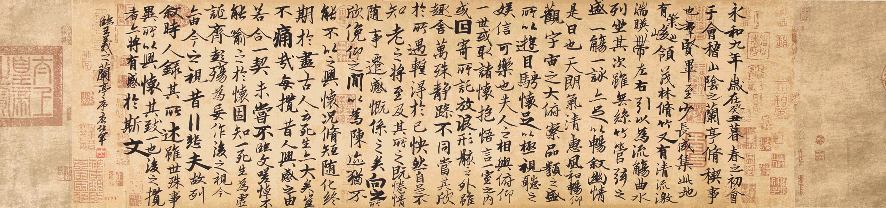 永和九年歲在癸丑暮春之初會
于會稽山陰之蘭亭脩稧事
也群賢畢至少長咸集此地
有崇山峻領茂林脩竹又有清流激
湍暎帶左右引以為流觴曲水
列坐其次雖無絲竹管弦之
盛一觴一詠亦足以暢敘幽情
是日也天朗氣清惠風和暢仰
觀宇宙之大俯察品類之盛
所以遊目騁懷足以極視聽之
娛信可樂也夫人之相與俯仰
一世或取諸懷抱悟言一室之內
或因寄所託放浪形骸之外雖
趣舍萬殊靜躁不同當其欣
於所遇蹔得於己怏然自足不
知老之將至及其所之既惓情
隨事遷感慨係之矣向之所
欣俛仰之間以為陳迹猶不
能不以之興懷況脩短隨化終
期於盡古人云死生亦大矣豈
不痛哉每攬昔人興感之由
若合一契未嘗不臨文嗟悼不
能喻之於懷固知一死生為虛
誕齊彭殤為妄作後之視今
亦由今之視昔悲夫故列
敘時人錄其所述雖世殊事
異所以興懷其致一也後之攬
者亦將有感於斯文
臨王羲之蘭亭序